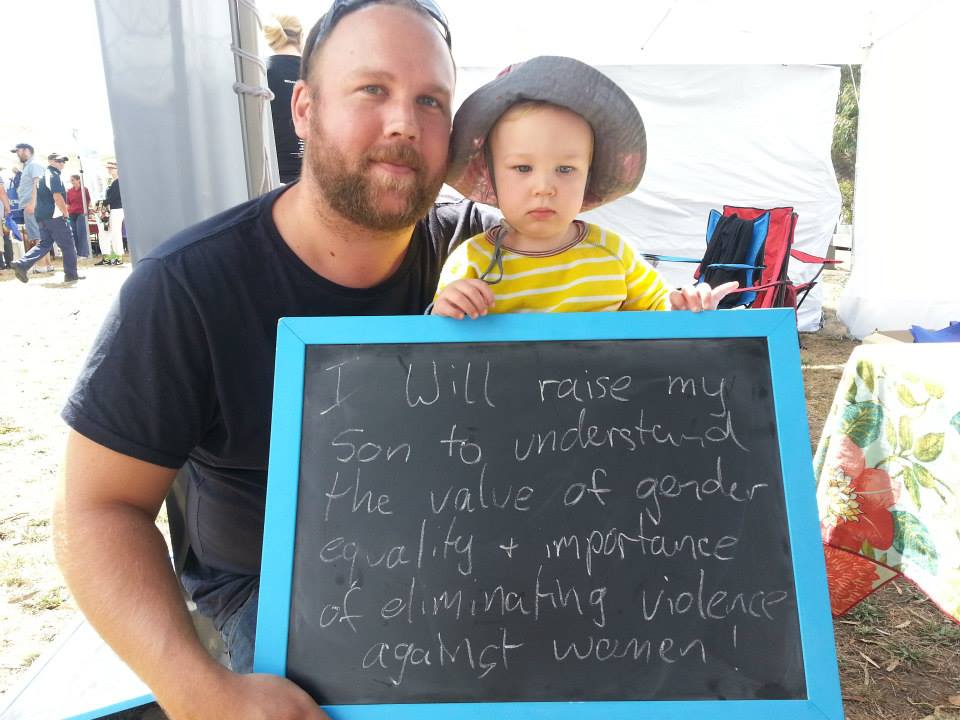 I Will raise my
son to understand
the value of gender
equality + importance
of eliminating violence
against women!